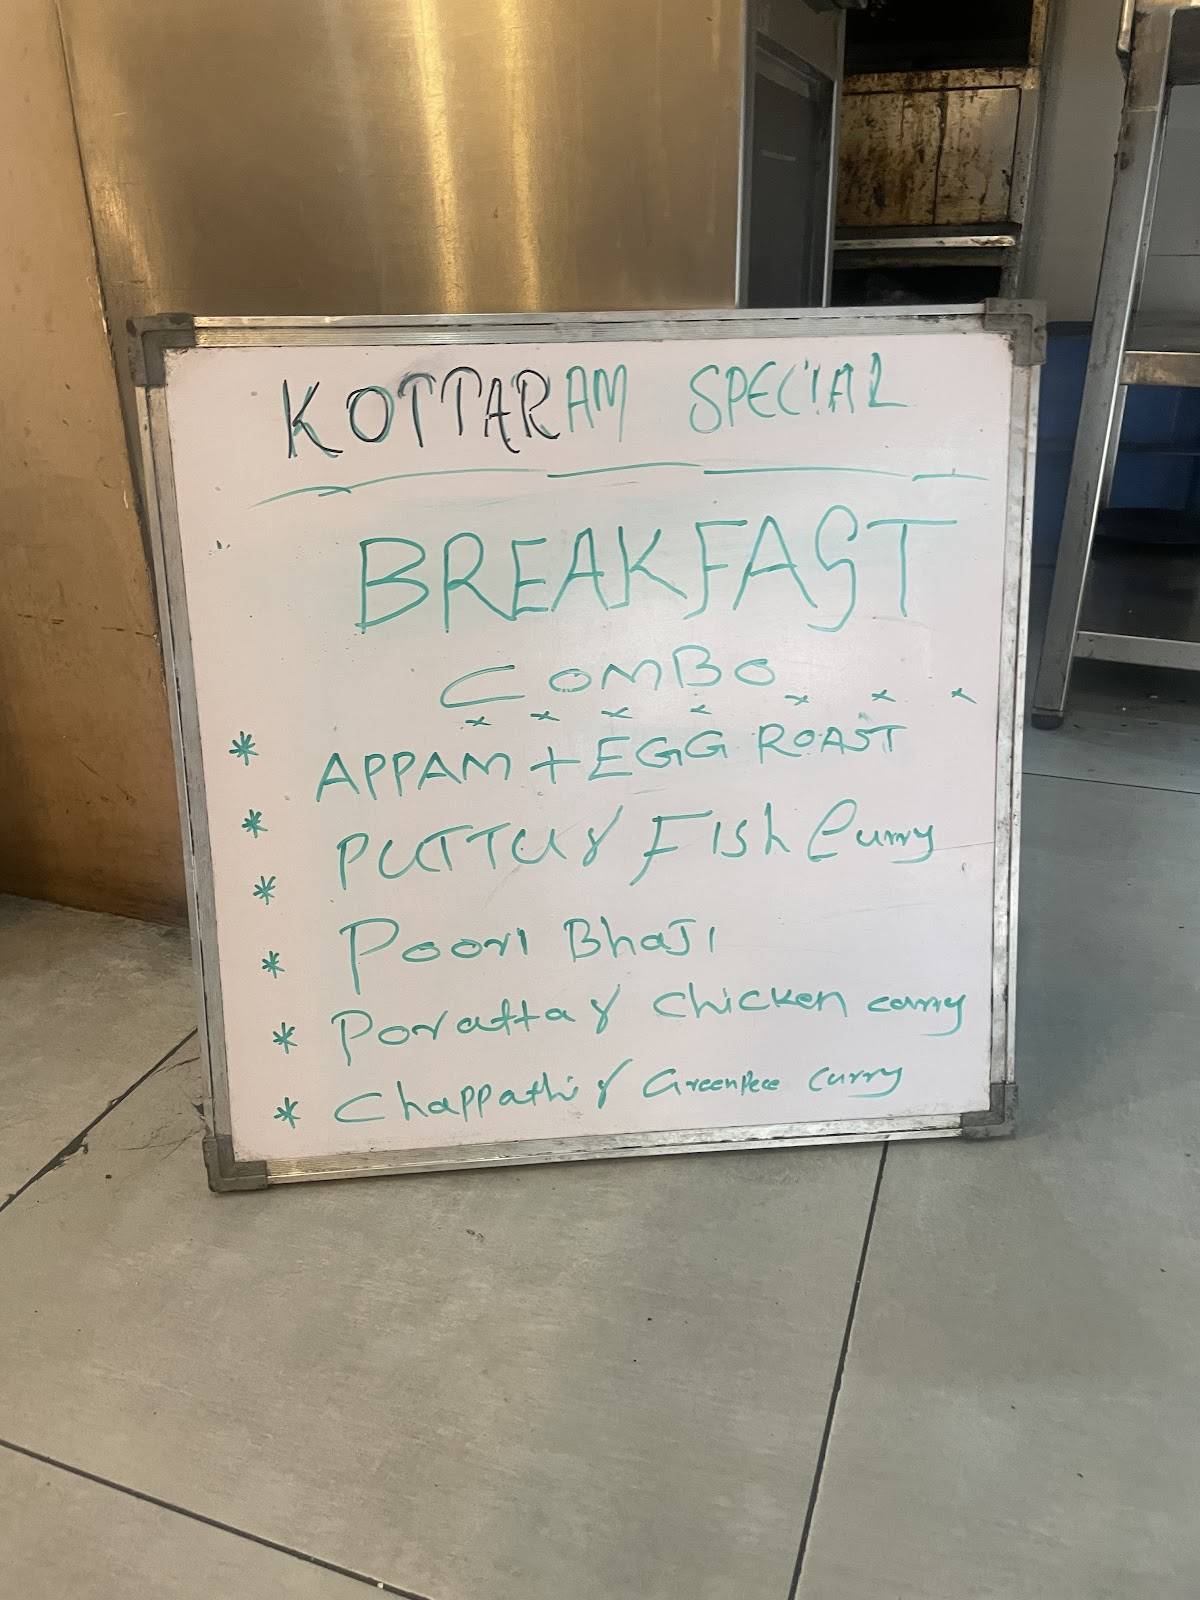 KOTTARAM SPECIAL
BREAKFAST
COMBO
* APPAM + EGG ROAST
* PUTTU & Fish Curry
*
* Poori BhaJi
* Poratta & chicken curry
* Chappathi & GreenPece curry